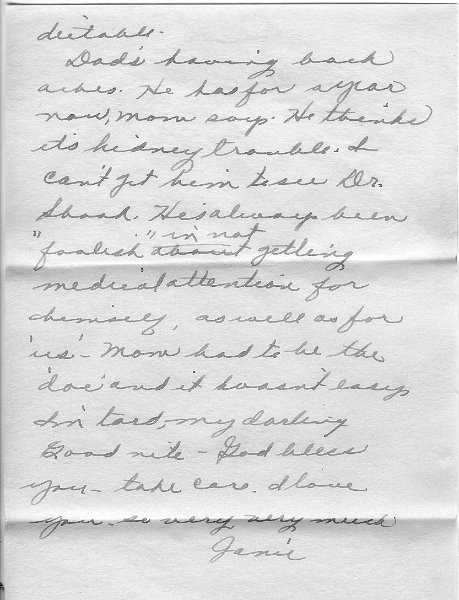 dictable.
Dad's having back
aches. He has for a year
now, Mom says. He thinks
it's kidney trouble. I
can't get him to see Dr.
Shook. He's always been
"foolish" in not getting
medical attention for
himself, as well as for
'us' - Mom had to be the
'doc' and it hwasn't easy.
I'm tard, my darling
Good nite - God bless
you - take care. I love
you - so very very much
Janie